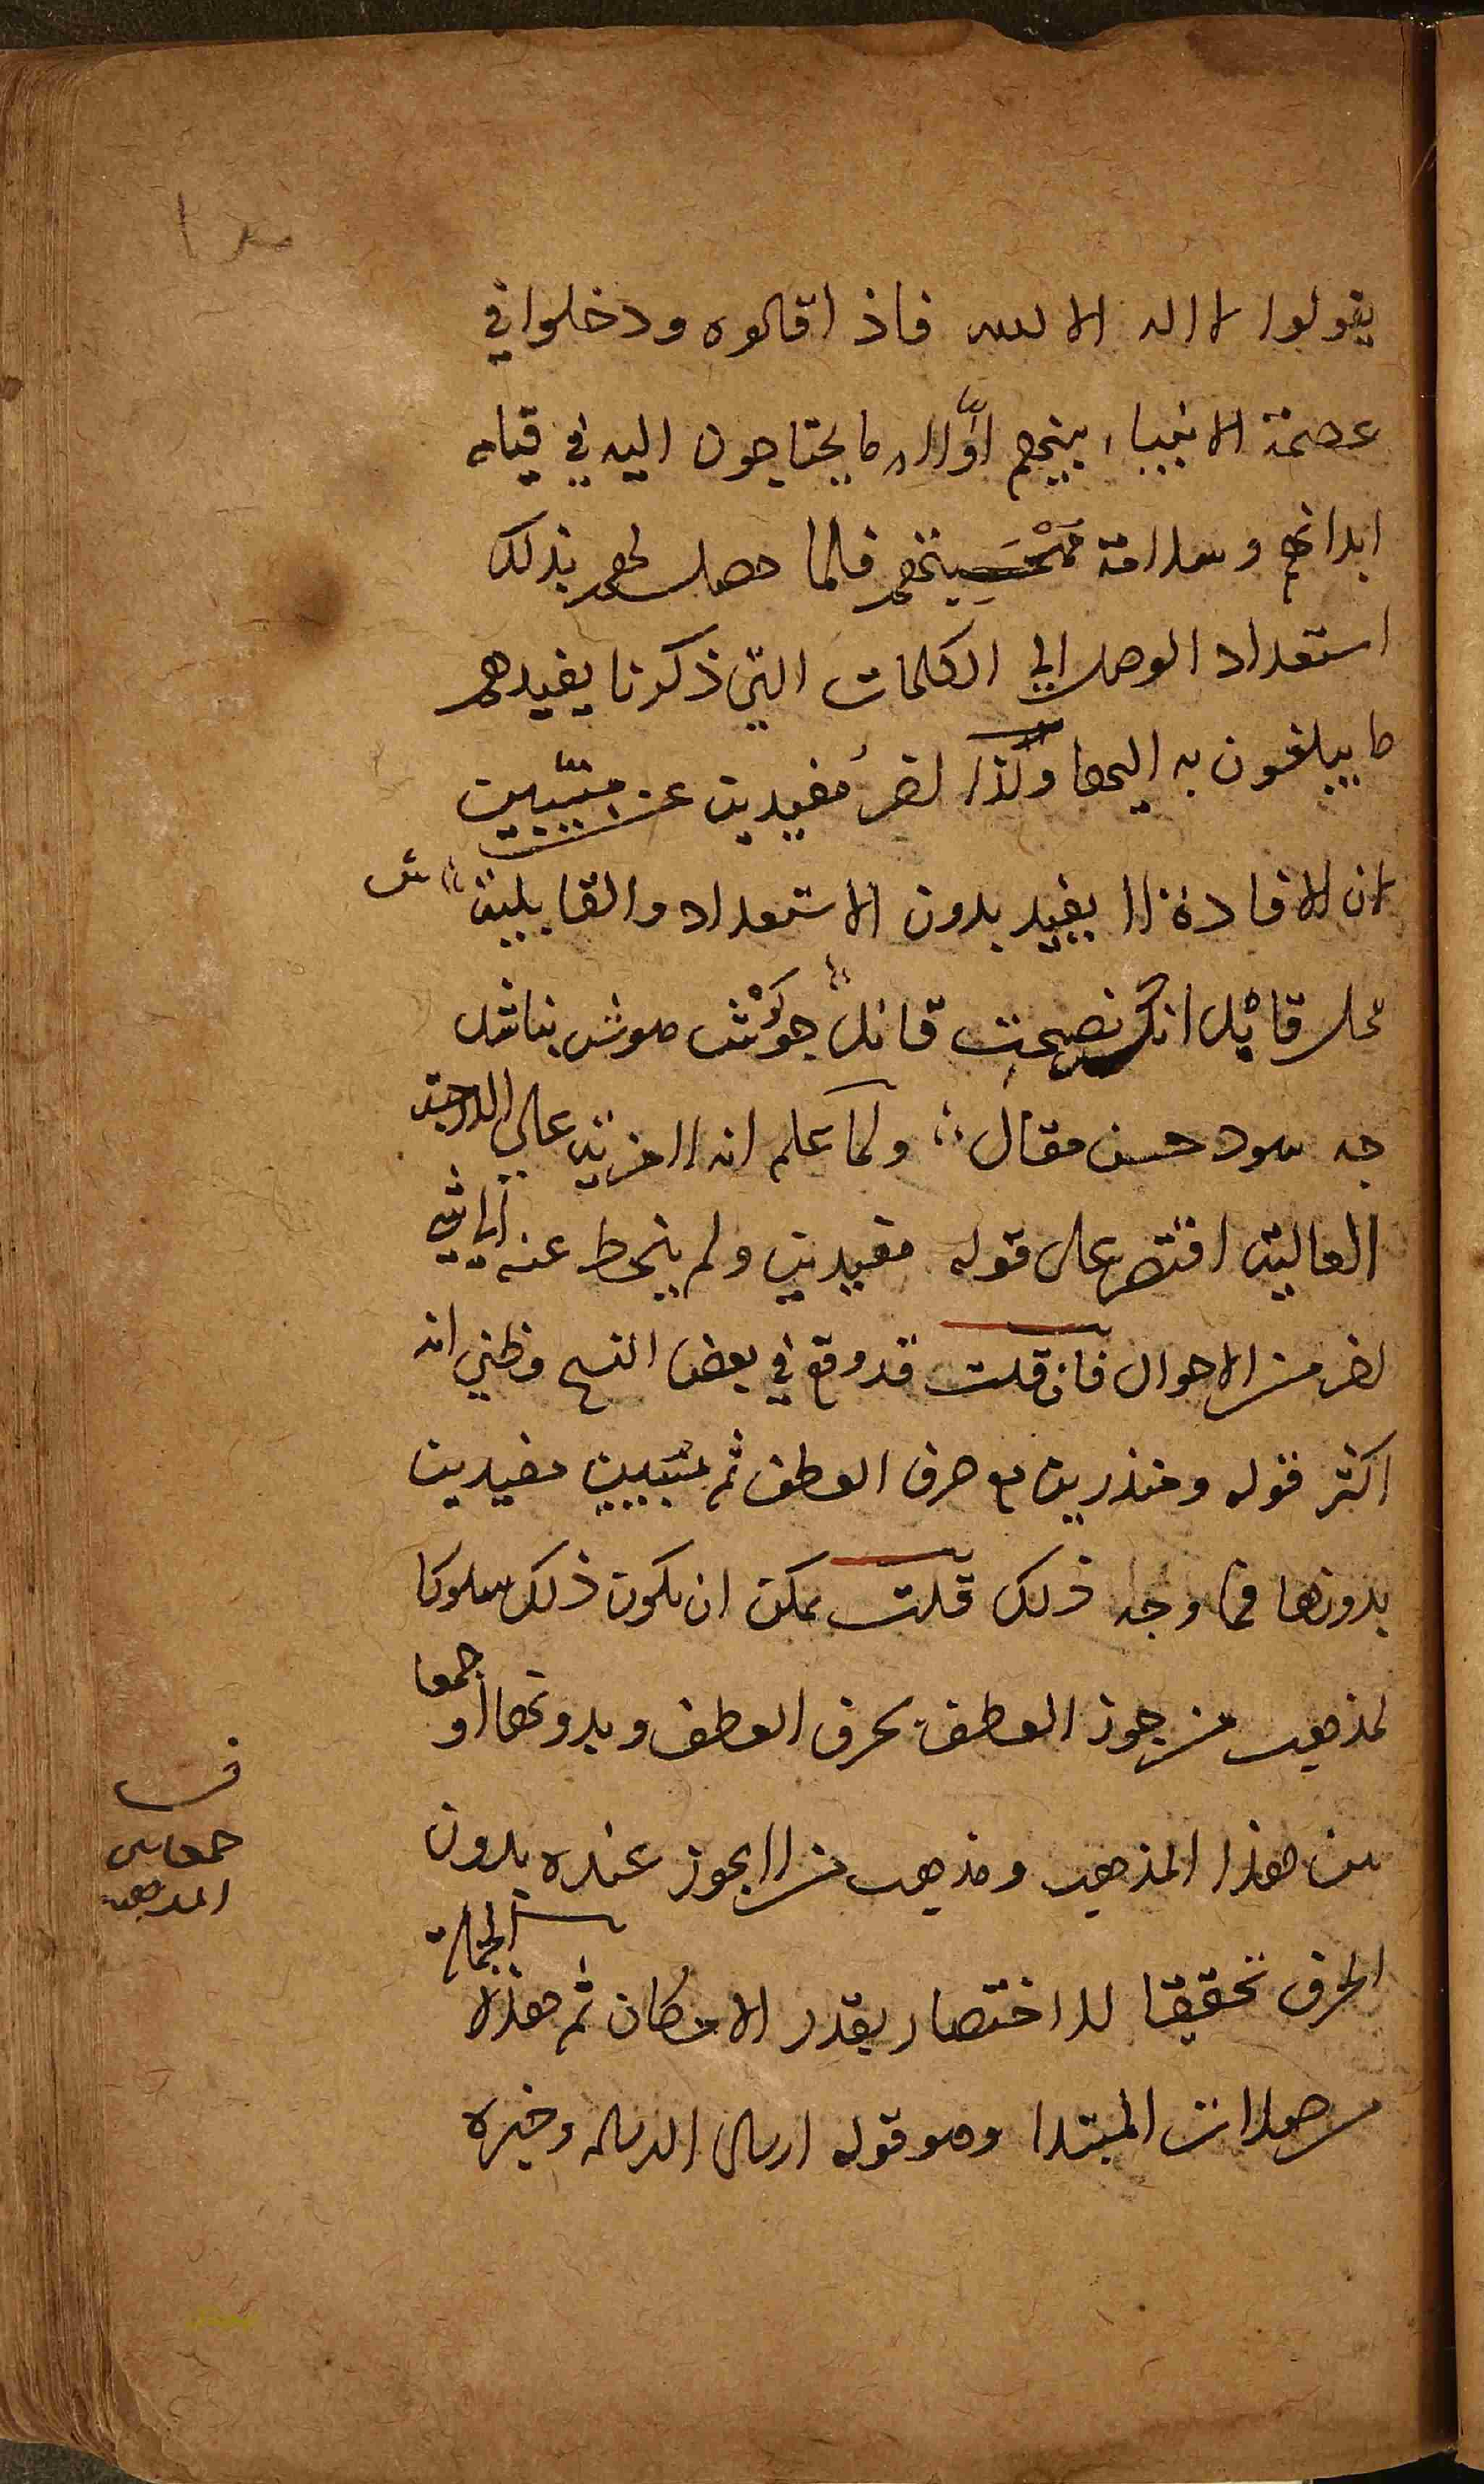 يقولوا لا اله الا الله فاذا قالوه ودخلوا في
عصمة الانبياء بينهم اولا ما يحتاجون اليه في قيام
ابدانهم وسلامة فلما حصل لهم بذلك
استعداد الوصل الي الكلمات التي ذكرنا يفيدهم
ما يبلغون به اليها وكذا اخر مفيدين عن مبينين
لان الافادة لا يفيد بدون الاستعداد والقابلية
محل قابل انكه نصيحت قائل چو گوش هوش نباشد
چه سود حسن مقال ولما علم انه لا مزية على الدرجة
العالية اقتصر على قوله مفيدين ولم ينحط عنه الى شيء
اخر من الاحوال فان قلت قد وقع في بعض النسخ وظني انه
اكثر قوله ومنذرين مع حرف العطف ثم مبينين مفيدين
بدونها فما وجه ذلك قلت يمكن ان يكون ذلك سلوكا
لمذهب من جوز العطف بحرف العطف وبدونها او جمعا
بين هذا المذهب ومذهب من لا يجوز عنده بدون
الحرف تحقيقا للاختصار بقدر الامكان ثم هذه الجملة
صلات المبتدا وهو قوله ارسال الرسل وخبره
جمعا بين
المذهب